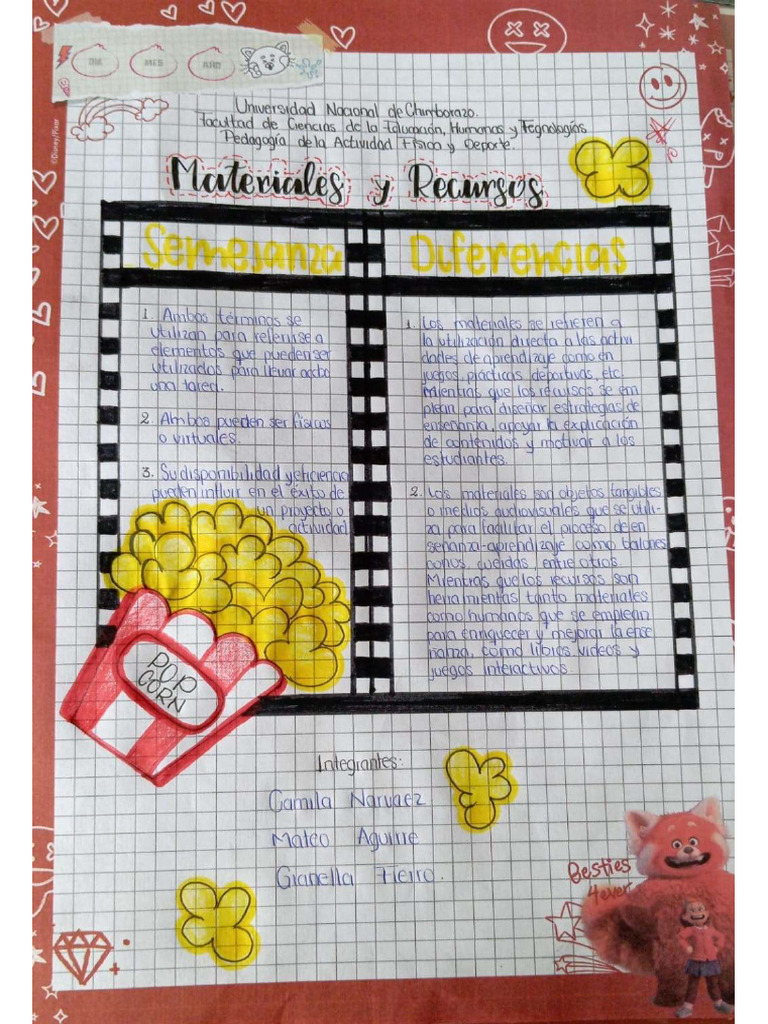 DIA MES AÑO
©Disney/Pixar
Universidad Nacional de Chimborazo.
Facultad de Ciencias de la Educación, Humanas y Tecnologías
Pedagogía de la Actividad Física y Deporte.
Materiales y Recursos
Semejanza
1. Ambos términos se
utilizan para referirse a
elementos que pueden ser
utilizados para llevar acabo
una tarea.
2. Ambos pueden ser físicos
o virtuales.
3. Su disponibilidad y eficiencia
pueden influir en el éxito de
un proyecto o
actividad
Diferencias
1. Los materiales se refieren a
la utilización directa a las activi
dades de aprendizaje como en
juegos, prácticas deportivas, etc.
Mientras que los recursos se em
plean para diseñar estrategias de
enseñanza, apoyar la explicación
de contenidos y motivar a los
estudiantes.
2. Los materiales son objetos tangibles
o medios audiovisuales que se utili-
za para facilitar el proceso de en
señanza-aprendizaje como balones
conos, cuerdas, entre otros.
Mientras que los recursos son
herramientas tanto materiales
como humanos que se emplean
para enriquecer y mejorar la ense
ñanza, como libros, videos y
juegos interactivos.
POP
CORN
Integrantes:
Camila Narvaez
Mateo Aguirre
Gianella Fierro.
Besties
4ever